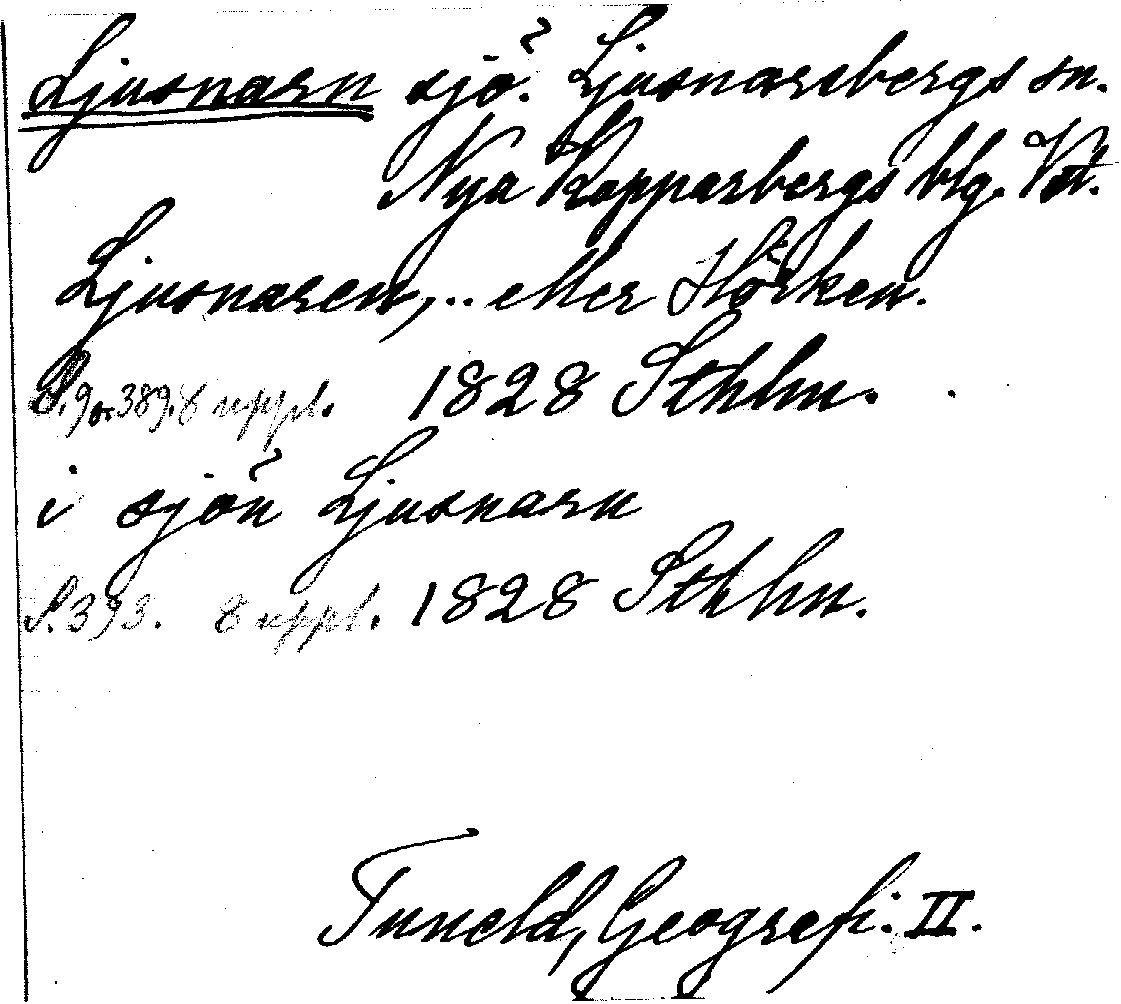 Ljusnarn sjö. Ljusnarsbergs sn.
Nya Kopparbergs blg. Vstl.
Ljusnaren, .. eller Hörken.
S. 9 o. 389. 8 uppl. 1828 Sthlm.
i sjön Ljusnarn
S. 393. 8 uppl. 1828 Sthlm.
Tuneld, Geografi. II.